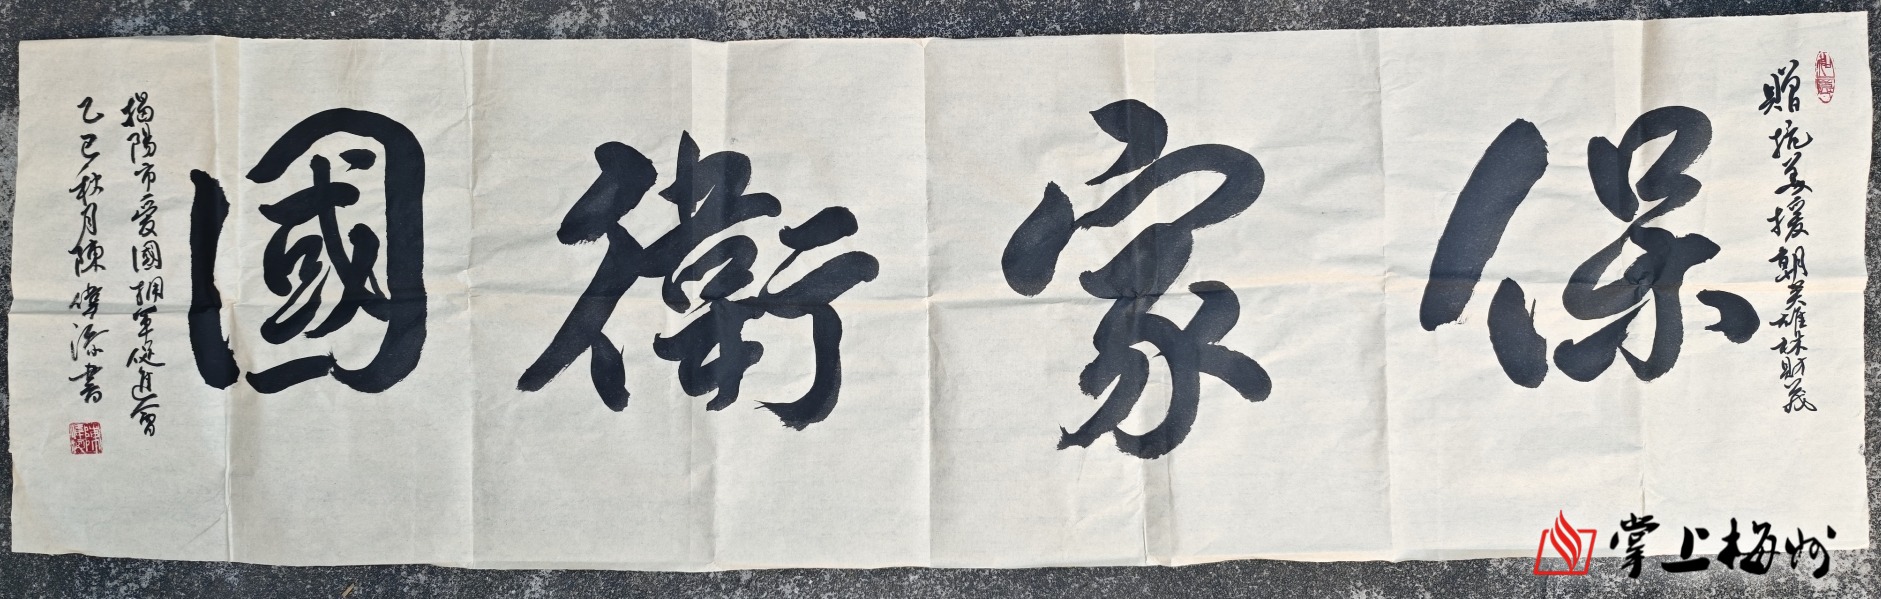 贈抗美援朝英雄林財茂
保家衛國
揭陽市愛國拥軍促進會
乙巳秋月陳 書
掌上梅州